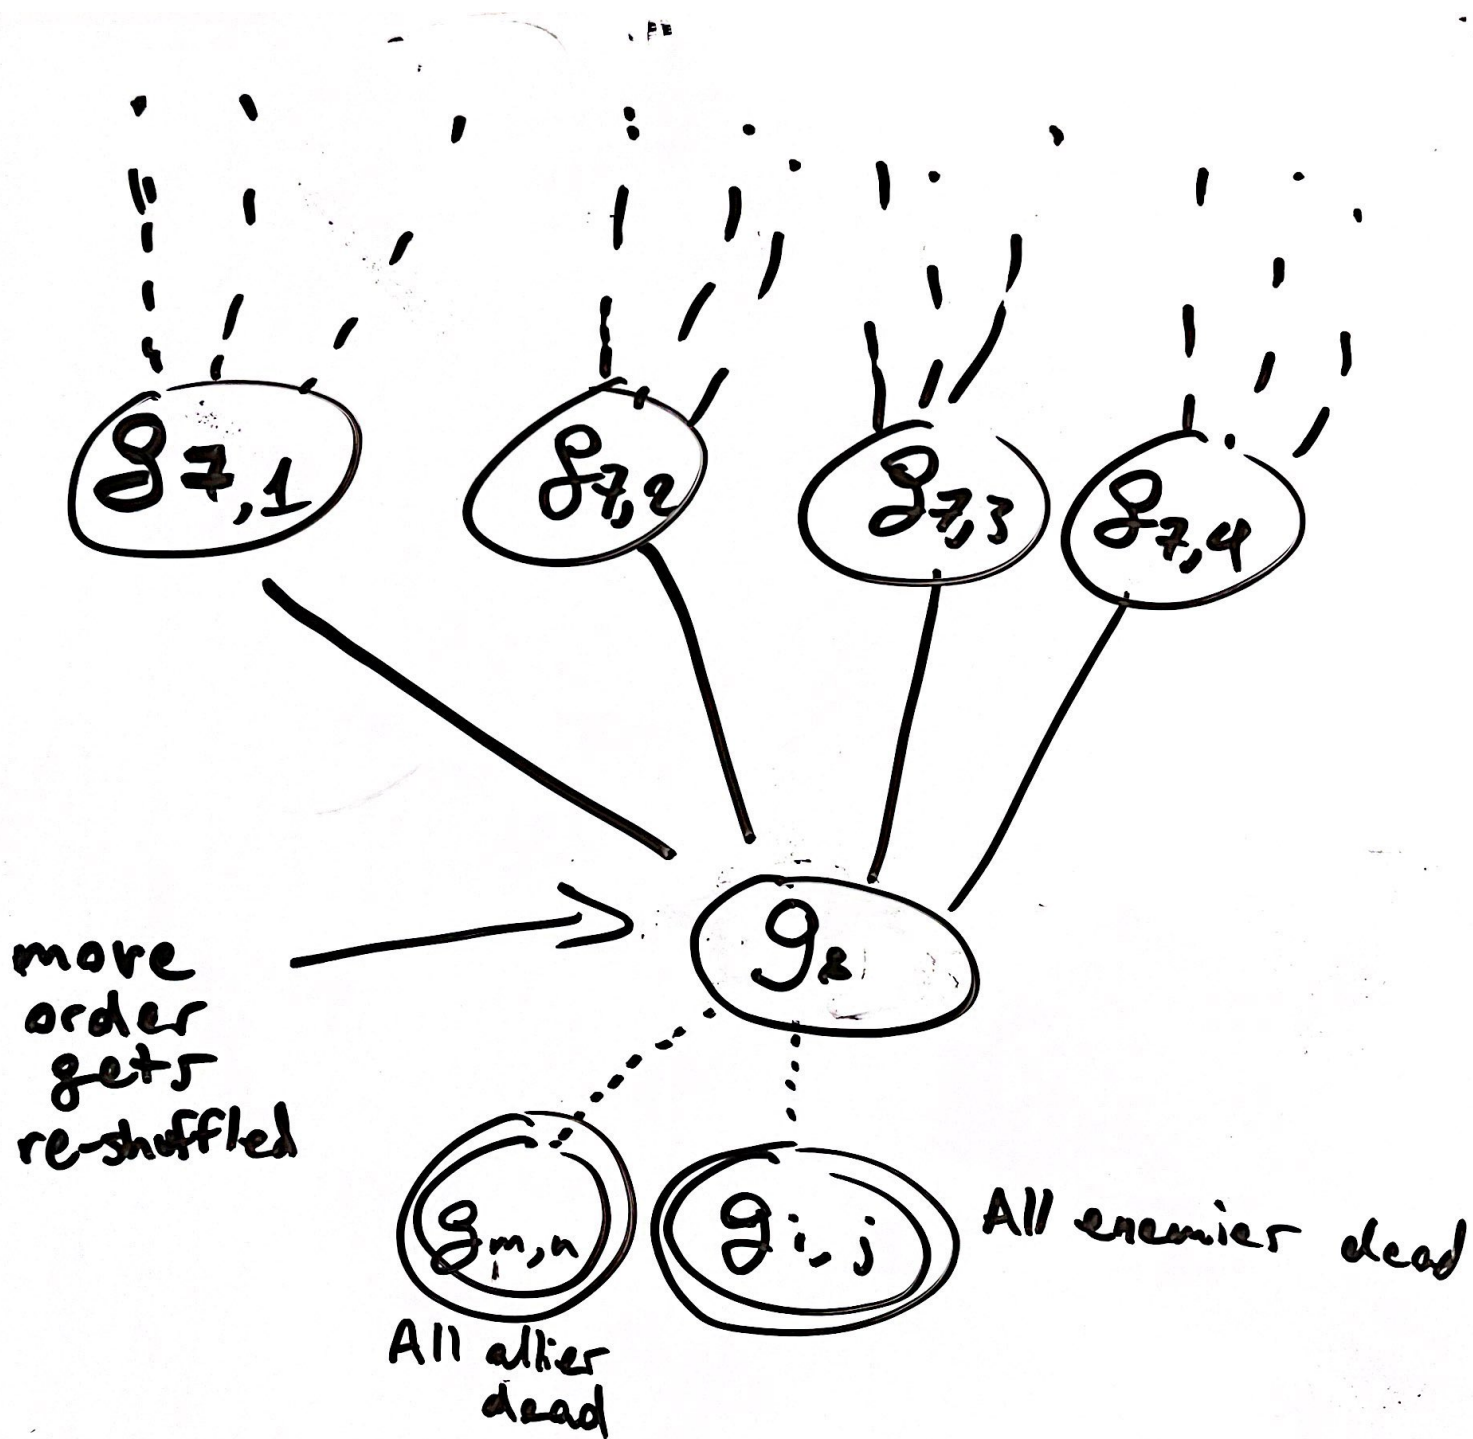 g7,1
g7,2
g7,3
g7,4
g8
more
order
gets
re-shuffled
gm,n
gi,j
All enemies dead
All allies
dead